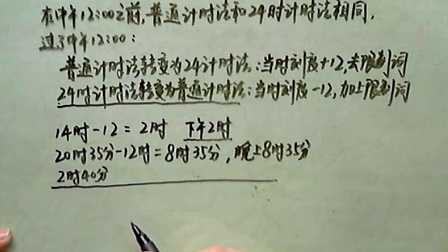 在中午12:00之前,普通计时法和24时计时法相同,
过了中午12:00:
普通计时法转变为24计时法:当时刻度+12,去限制词
24时计时法转变为普通计时法:当时刻度-12,加上限制词
14时-12=2时 下午2时
20时35分-12时=8时35分,晚上8时35分
2时40分